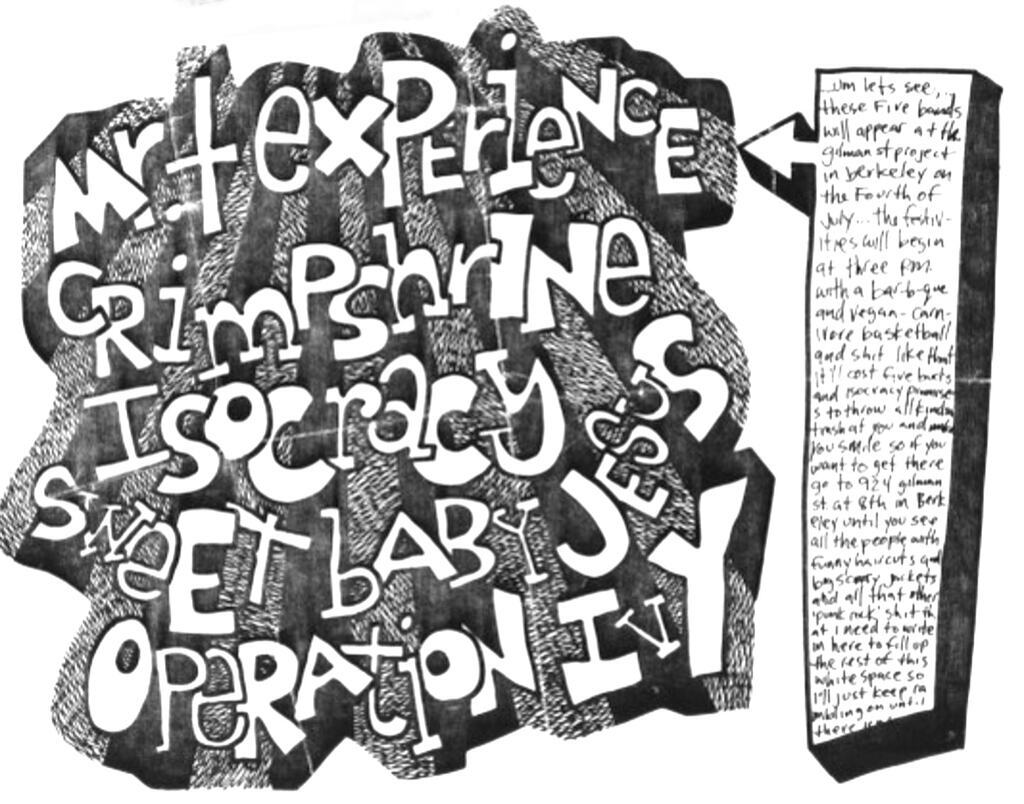 Mr. t exPErieNCE
CRimPshriNe
IsoCracy
SweET bABY JESUS
OPeRAtiON IVY
...um lets see,..
these Five bands
will appear at the
gilman st project
in berkeley on
the Fourth of
July... the festiv-
ities will begin
at three PM.
with a bar-b-que
and vegan-carn-
ivore basketball
and shit like that
it'll cost five bucks
and isocracy promise
s to throw all kinda
trash at you and make
you smile so if you
want to get there
go to 924 gilman
st. at 8th in Berk
eley until you see
all the people with
funny haircuts and
big scary jackets
and all that other
'punk rock' shit th
at i need to write
in here to fill up
the rest of this
white space so
i'll just keep ra
mbling on until
there